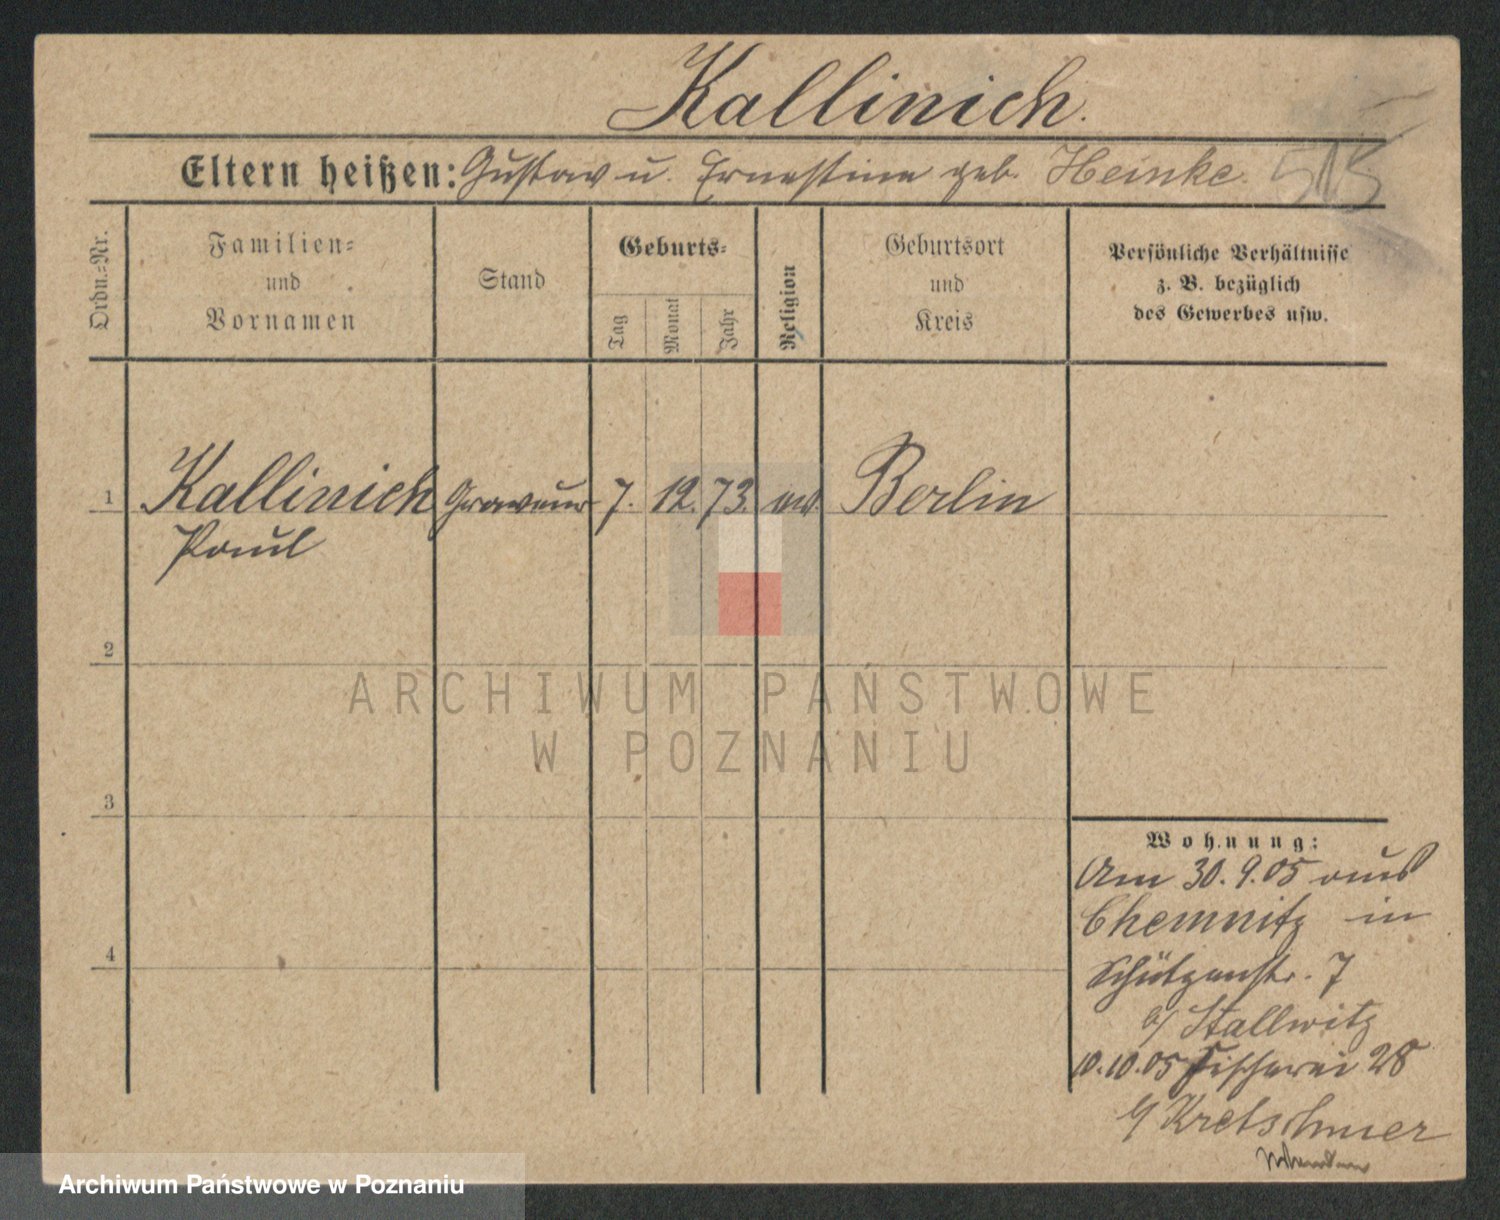 Kallinich.
Eltern heißen: Gustav u. Ernestine geb. Heinke. 515
Ordn.=Nr.
Familien=
und
Vornamen
Stand
Geburts=
Tag
Monat
Jahr
Religion
Geburtsort
und
Kreis
Persönliche Verhältnisse
z. B. bezüglich
des Gewerbes usw.
1 Kallinich Graveur 7. 12. 73. ev. Berlin
Paul
2
ARCHIWUM PAŃSTWOWE
W POZNANIU
3
Wohnung:
Am 30.9.05 aus
Chemnitz in
Schützenstr. 7
b/ Stallwitz
4
10.10.05 Fischerei 28
b/ Kretschmer
Archiwum Państwowe w Poznaniu